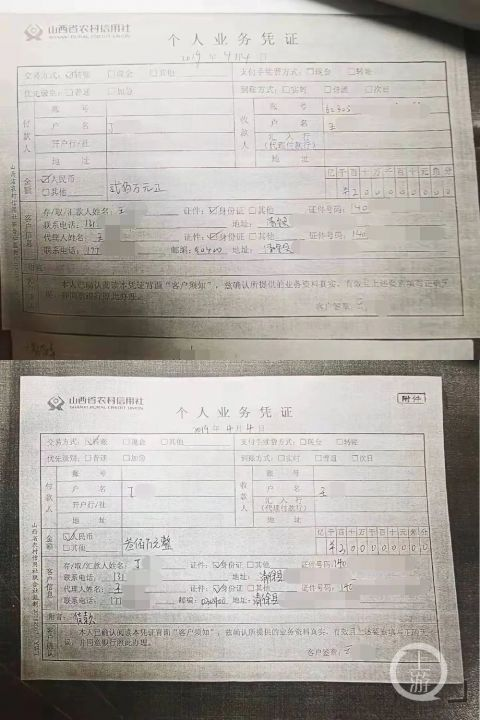 山西省农村信用社
SHANXI RURAL CREDIT UNION
个人业务凭证
2019年4月4日
交易方式: ☑转账 □现金 □其他 支付手续费方式: □现金 □转账
优先级别: □普通 □加急 到账方式: □实时 □普通 □次日
付款人 账号 收款人 账号 62305
户名 丁 户名 王
开户行/社 汇入行
(代理付款行)
地址 地址
金额 ☑人民币 亿千百十万千百十元角分
□其他 贰佰万元正 ¥200000000
客户信息 存/取/汇款人姓名: 王 证件: ☑身份证 □其他 证件号码: 140
联系电话: 131 地址: 清徐县
代理人姓名: 王 证件: ☑身份证 □其他 证件号码: 140
联系电话: 177 邮编: 地址: 清徐县
附言:
本人已确认阅读本凭证背面“客户须知”, 兹确认所提供的业务资料真实、有效且上述要素填写正确无
误, 并同意银行照此办理。
客户签章: 王
山西省农村信用社
SHANXI RURAL CREDIT UNION
附件
个人业务凭证
2019年4月4日
交易方式: ☑转账 □现金 □其他 支付手续费方式: □现金 □转账
优先级别: □普通 □加急 到账方式: □实时 □普通 □次日
付款人 账号 收款人 账号
户名 丁 户名 王
开户行/社 汇入行
(代理付款行)
地址 地址
金额 ☑人民币 亿千百十万千百十元角分
□其他 叁佰万元整 ¥300000000
客户信息 存/取/汇款人姓名: 丁 证件: ☑身份证 □其他 证件号码: 140
联系电话: 131 地址: 清徐县
代理人姓名: 王 证件: ☑身份证 □其他 证件号码: 140
联系电话: 177 邮编: 030400 地址: 清徐县
附言: 借款
本人已确认阅读本凭证背面“客户须知”, 兹确认所提供的业务资料真实、有效且上述要素填写正确无
误, 并同意银行照此办理。
客户签章: 王
上游